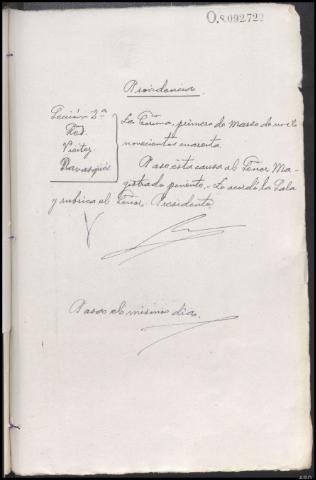 O.8.092.722
Providencia.
Sección 2ª
Red.
Vieitez
La Coruña, primero de Marzo de mil
novecientos cuarenta.
Pase esta causa al Señor Ma-
gistrado ponente.- Lo acordó la Sala
y rubrica el Señor Presidente
Pasos el mismo dia.